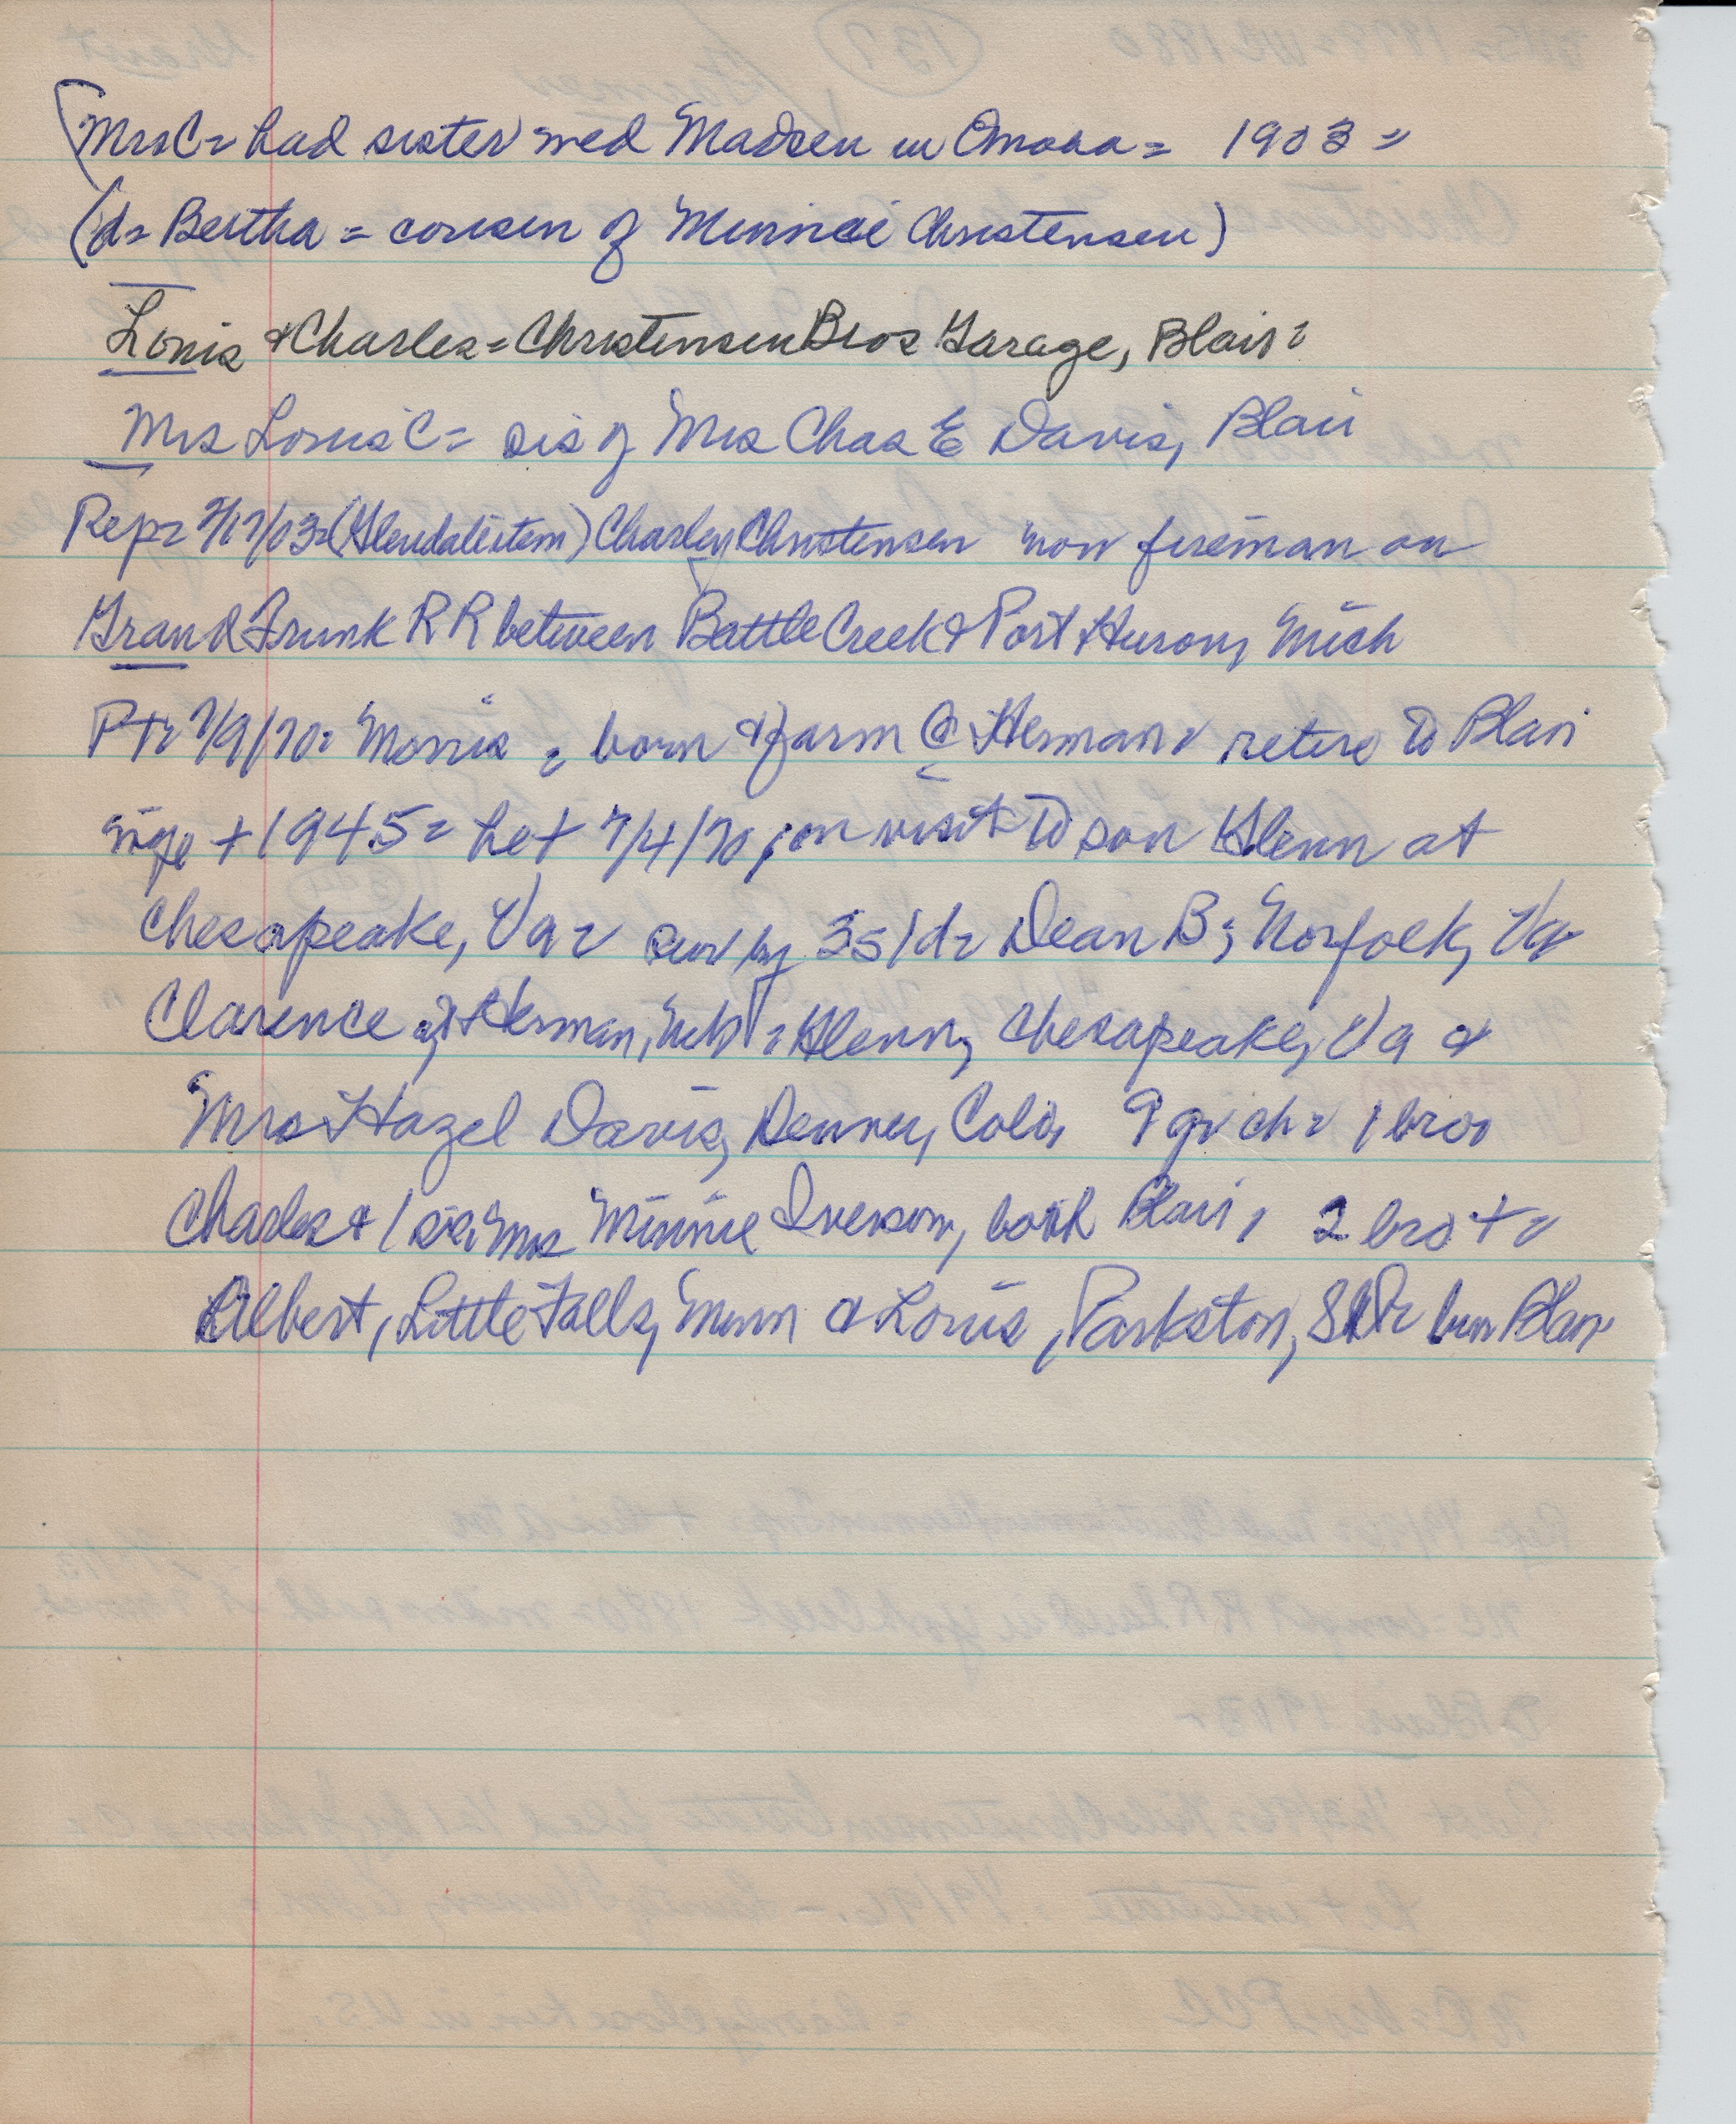 (Mrs C = had sister wed Madsen in Omaha = 1903 =
(d = Bertha = cousin of Minnie Christensen)
Louis & Charles = Christensen Bros Garage, Blair =
Mrs Louis C = sis of Mrs Chas E Davis, Blair
Rep = /17/03 = (Glendale item) Charley Christensen now fireman on
Grand Trunk RR between Battle Creek & Port Huron, Mich
PT = 7/9/70 = Morris = born & farm @ Herman = retire to Blair
wife + 1945 = he + 7/4/70, on visit to son Glenn at
Chesapeake, Va = surv by 3s/d = Dean B; Norfolk, Va
Clarence of Herman, Neb = Glenn, Chesapeake, Va &
Mrs Hazel Davis, Denver, Colo, 9 gr ch = 1 bro
Charles & 1 sis, Mrs Minnie Iverson, both Blair, 2 bro + =
Albert, Little Falls, Minn & Louis, Parkston, S D = bur Blair